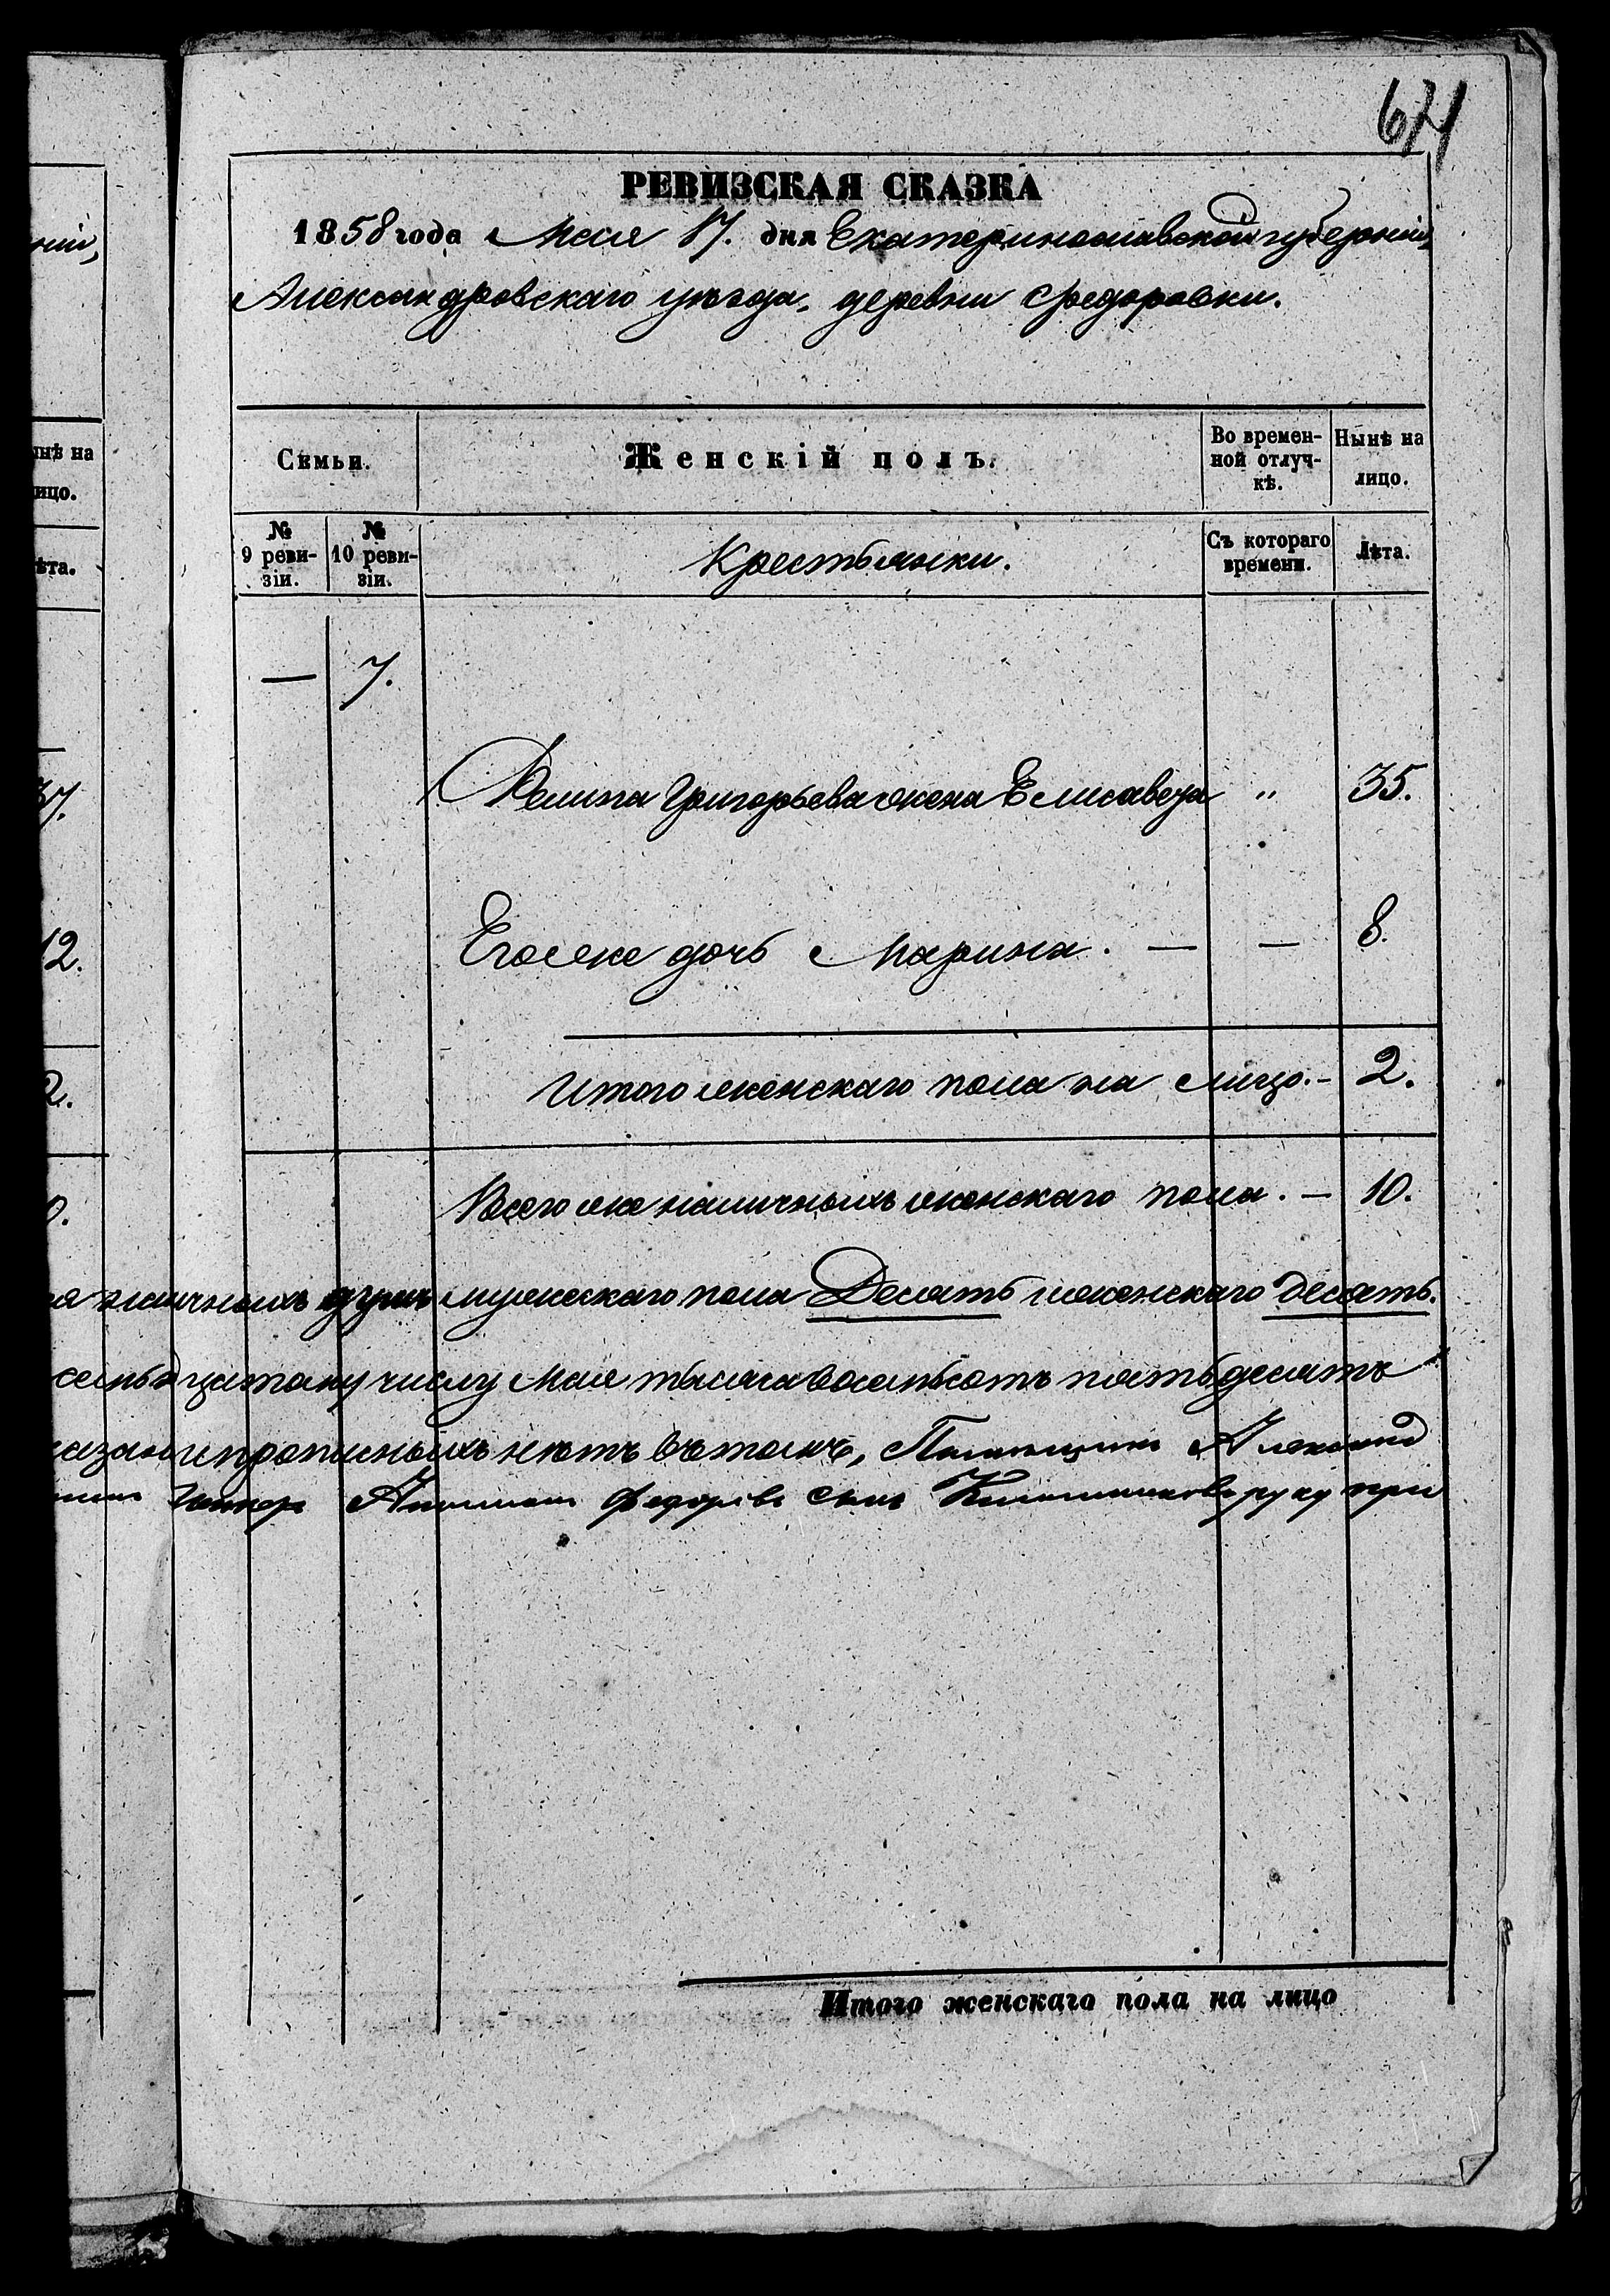 671
РЕВИЗСКАЯ СКАЗКА
1858 года Мая 17. дня Екатеринославской губерніи,
Александровскаго уѣзда, деревни Федоровки.
Семьи.
Женскій полъ.
Во времен-
ной отлуч-
кѣ.
Нынѣ на
лицо.
№
9 реви-
зіи.
№
10 реви-
зіи.
Крестьянки.
Съ котораго
времени.
Лѣта.
— 7.
Григорьева жена Елисавета " 35.
Его же дочь Марина. — — 8.
Итого женскаго пола на лицо. – 2.
Всего же наличныхъ женскаго пола. – 10.
наличныхъ душъ мужескаго пола Десять и женскаго десять.
числу Мая тысяча восемьсотъ пятьдесятъ
и прописныхъ нѣтъ въ томъ, Помѣщикъ
Федоровъ сынъ руку при
Итого женскаго пола на лицо
нѣ на
ицо.
ѣта.
37.
12.
2.
0.